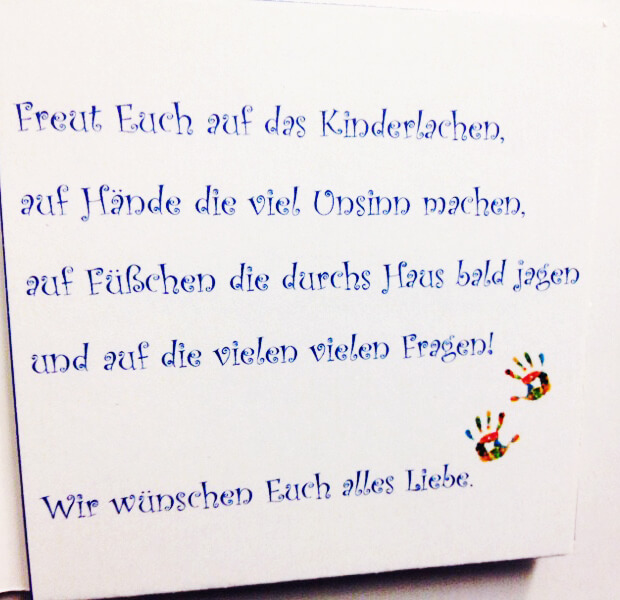 Freut Euch auf das Kinderlachen,
auf Hände die viel Unsinn machen,
auf Füßchen die durchs Haus bald jagen
und auf die vielen vielen Fragen!
Wir wünschen Euch alles Liebe.